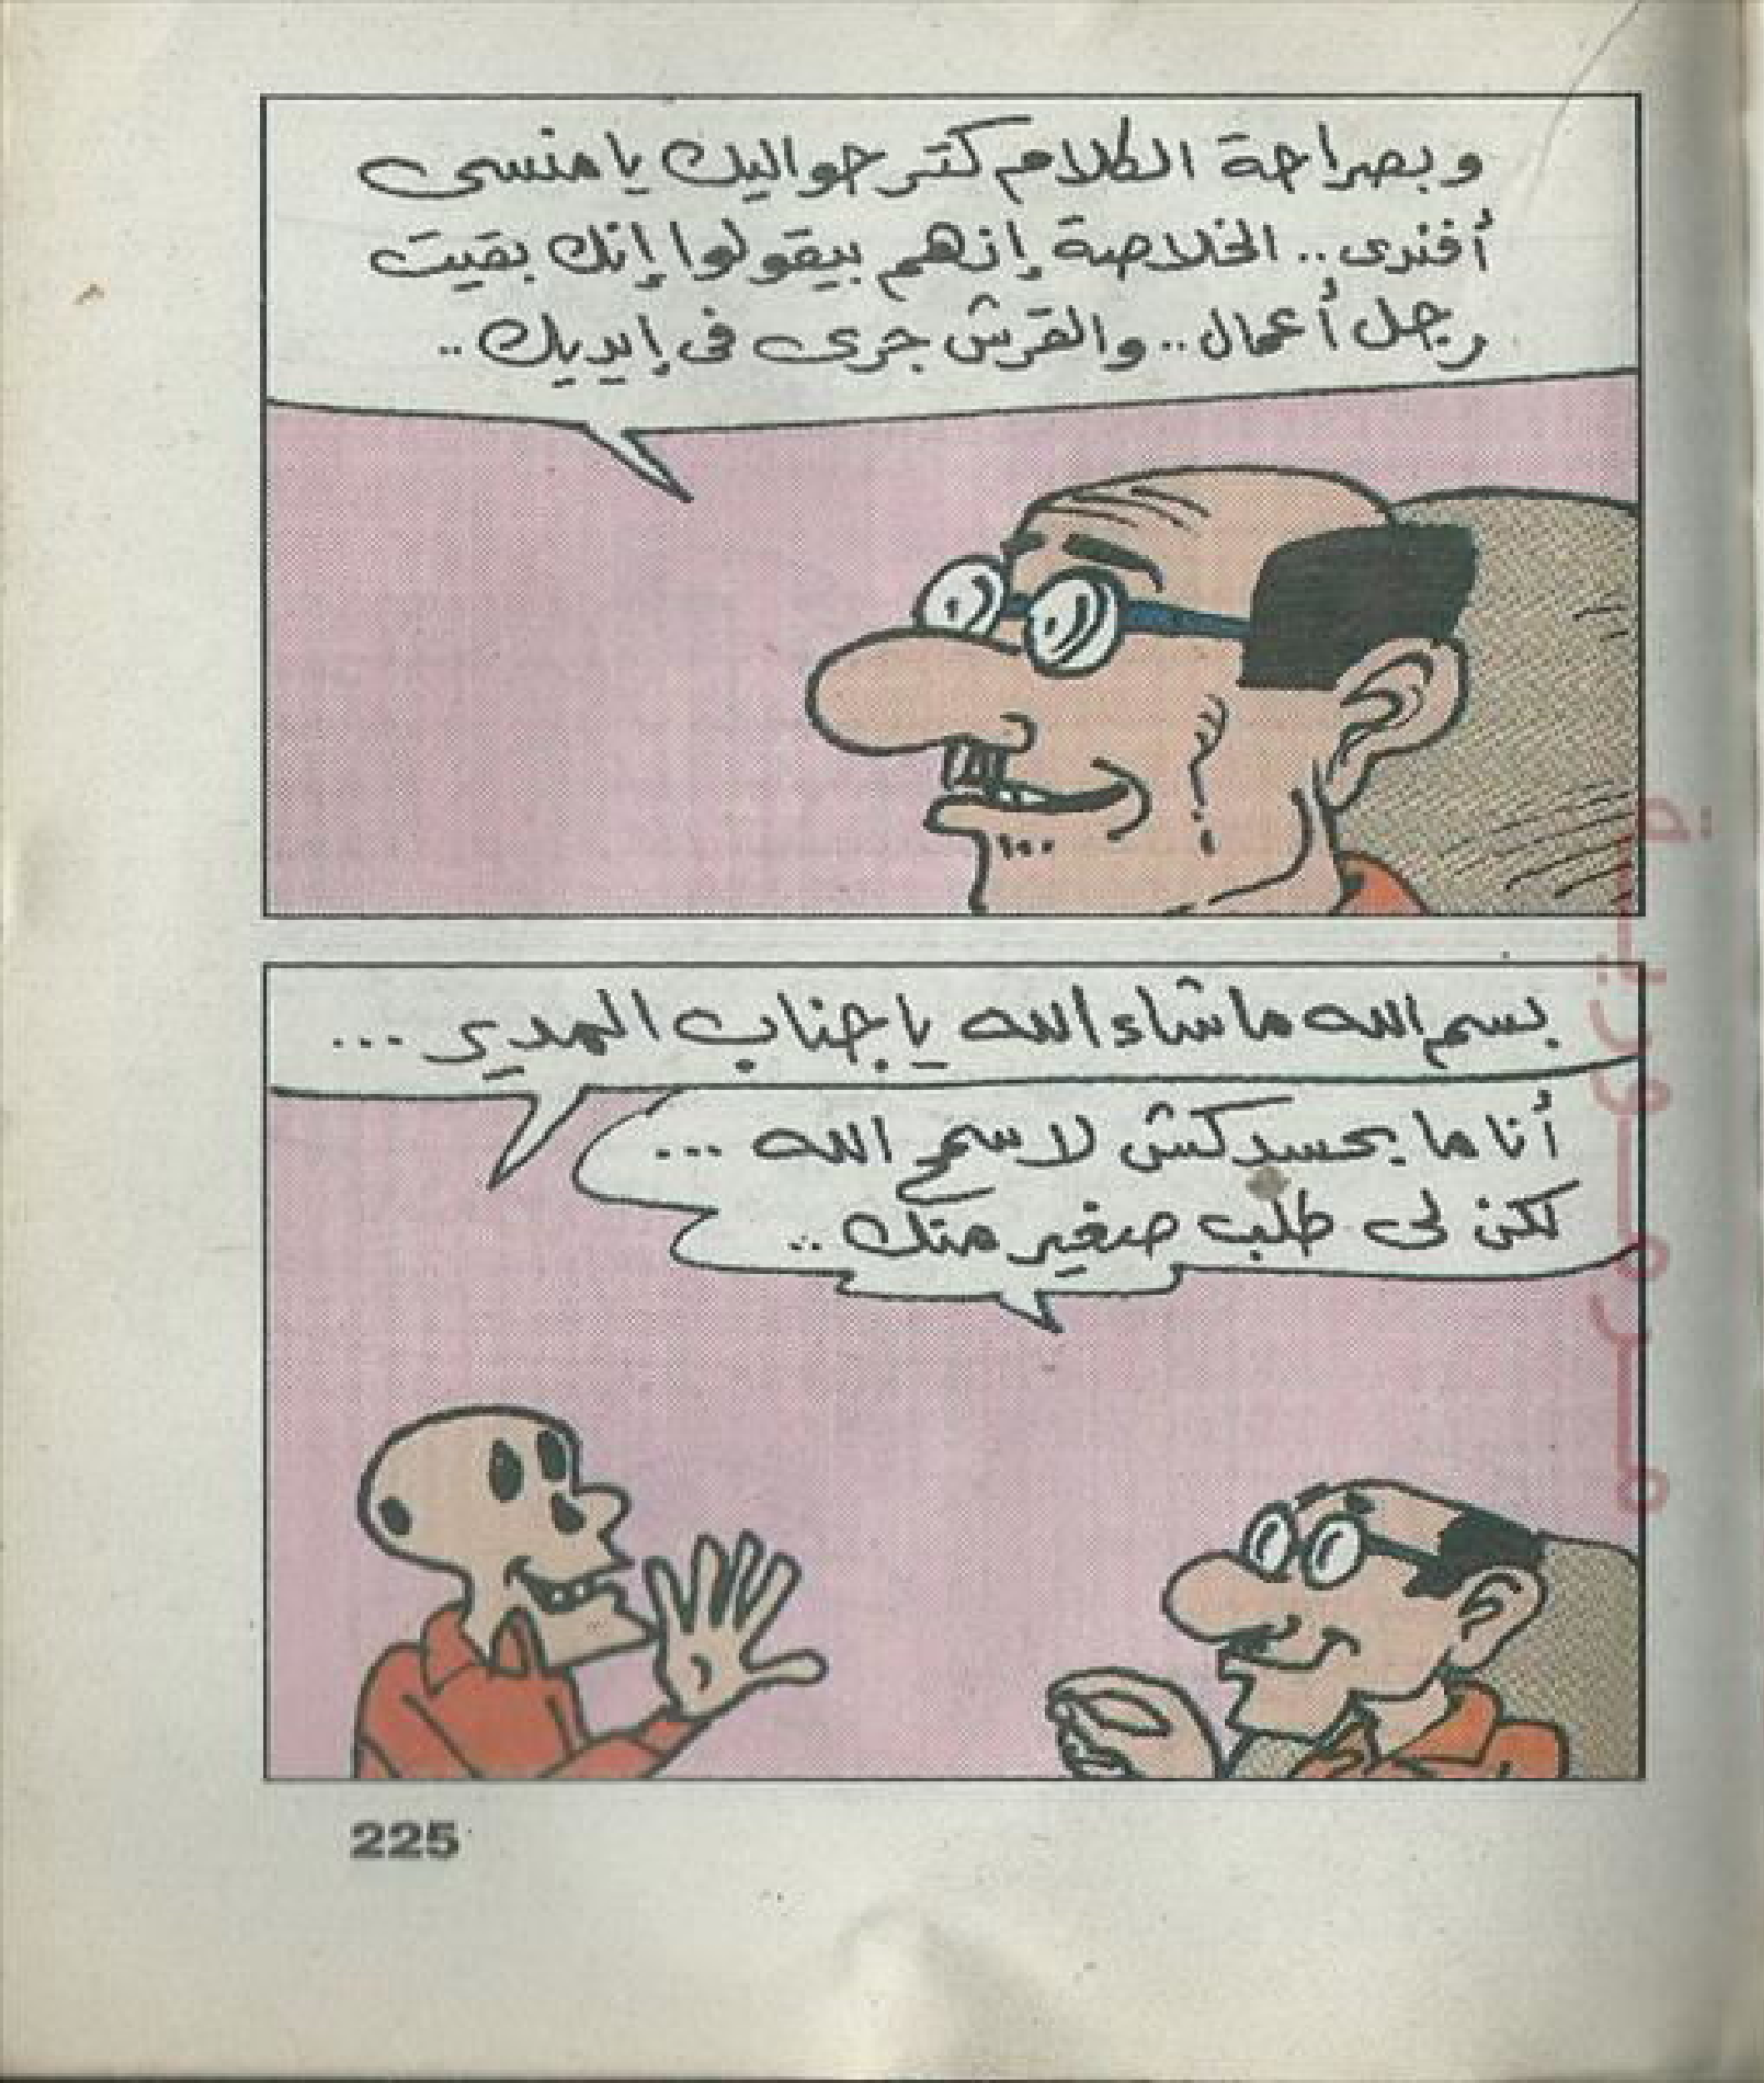 وبصراحة الكلام كتر حواليك يا منسى
أفندى.. الخلاصة إنهم بيقولوا إنك بقيت
رجل أعمال.. والقرش جرى فى إيديك..
بسم الله ماشاء الله يا جناب المدير...
أنا ما بحسدكش لاسمح الله ...
لكن لى طلب صغير منك..
225